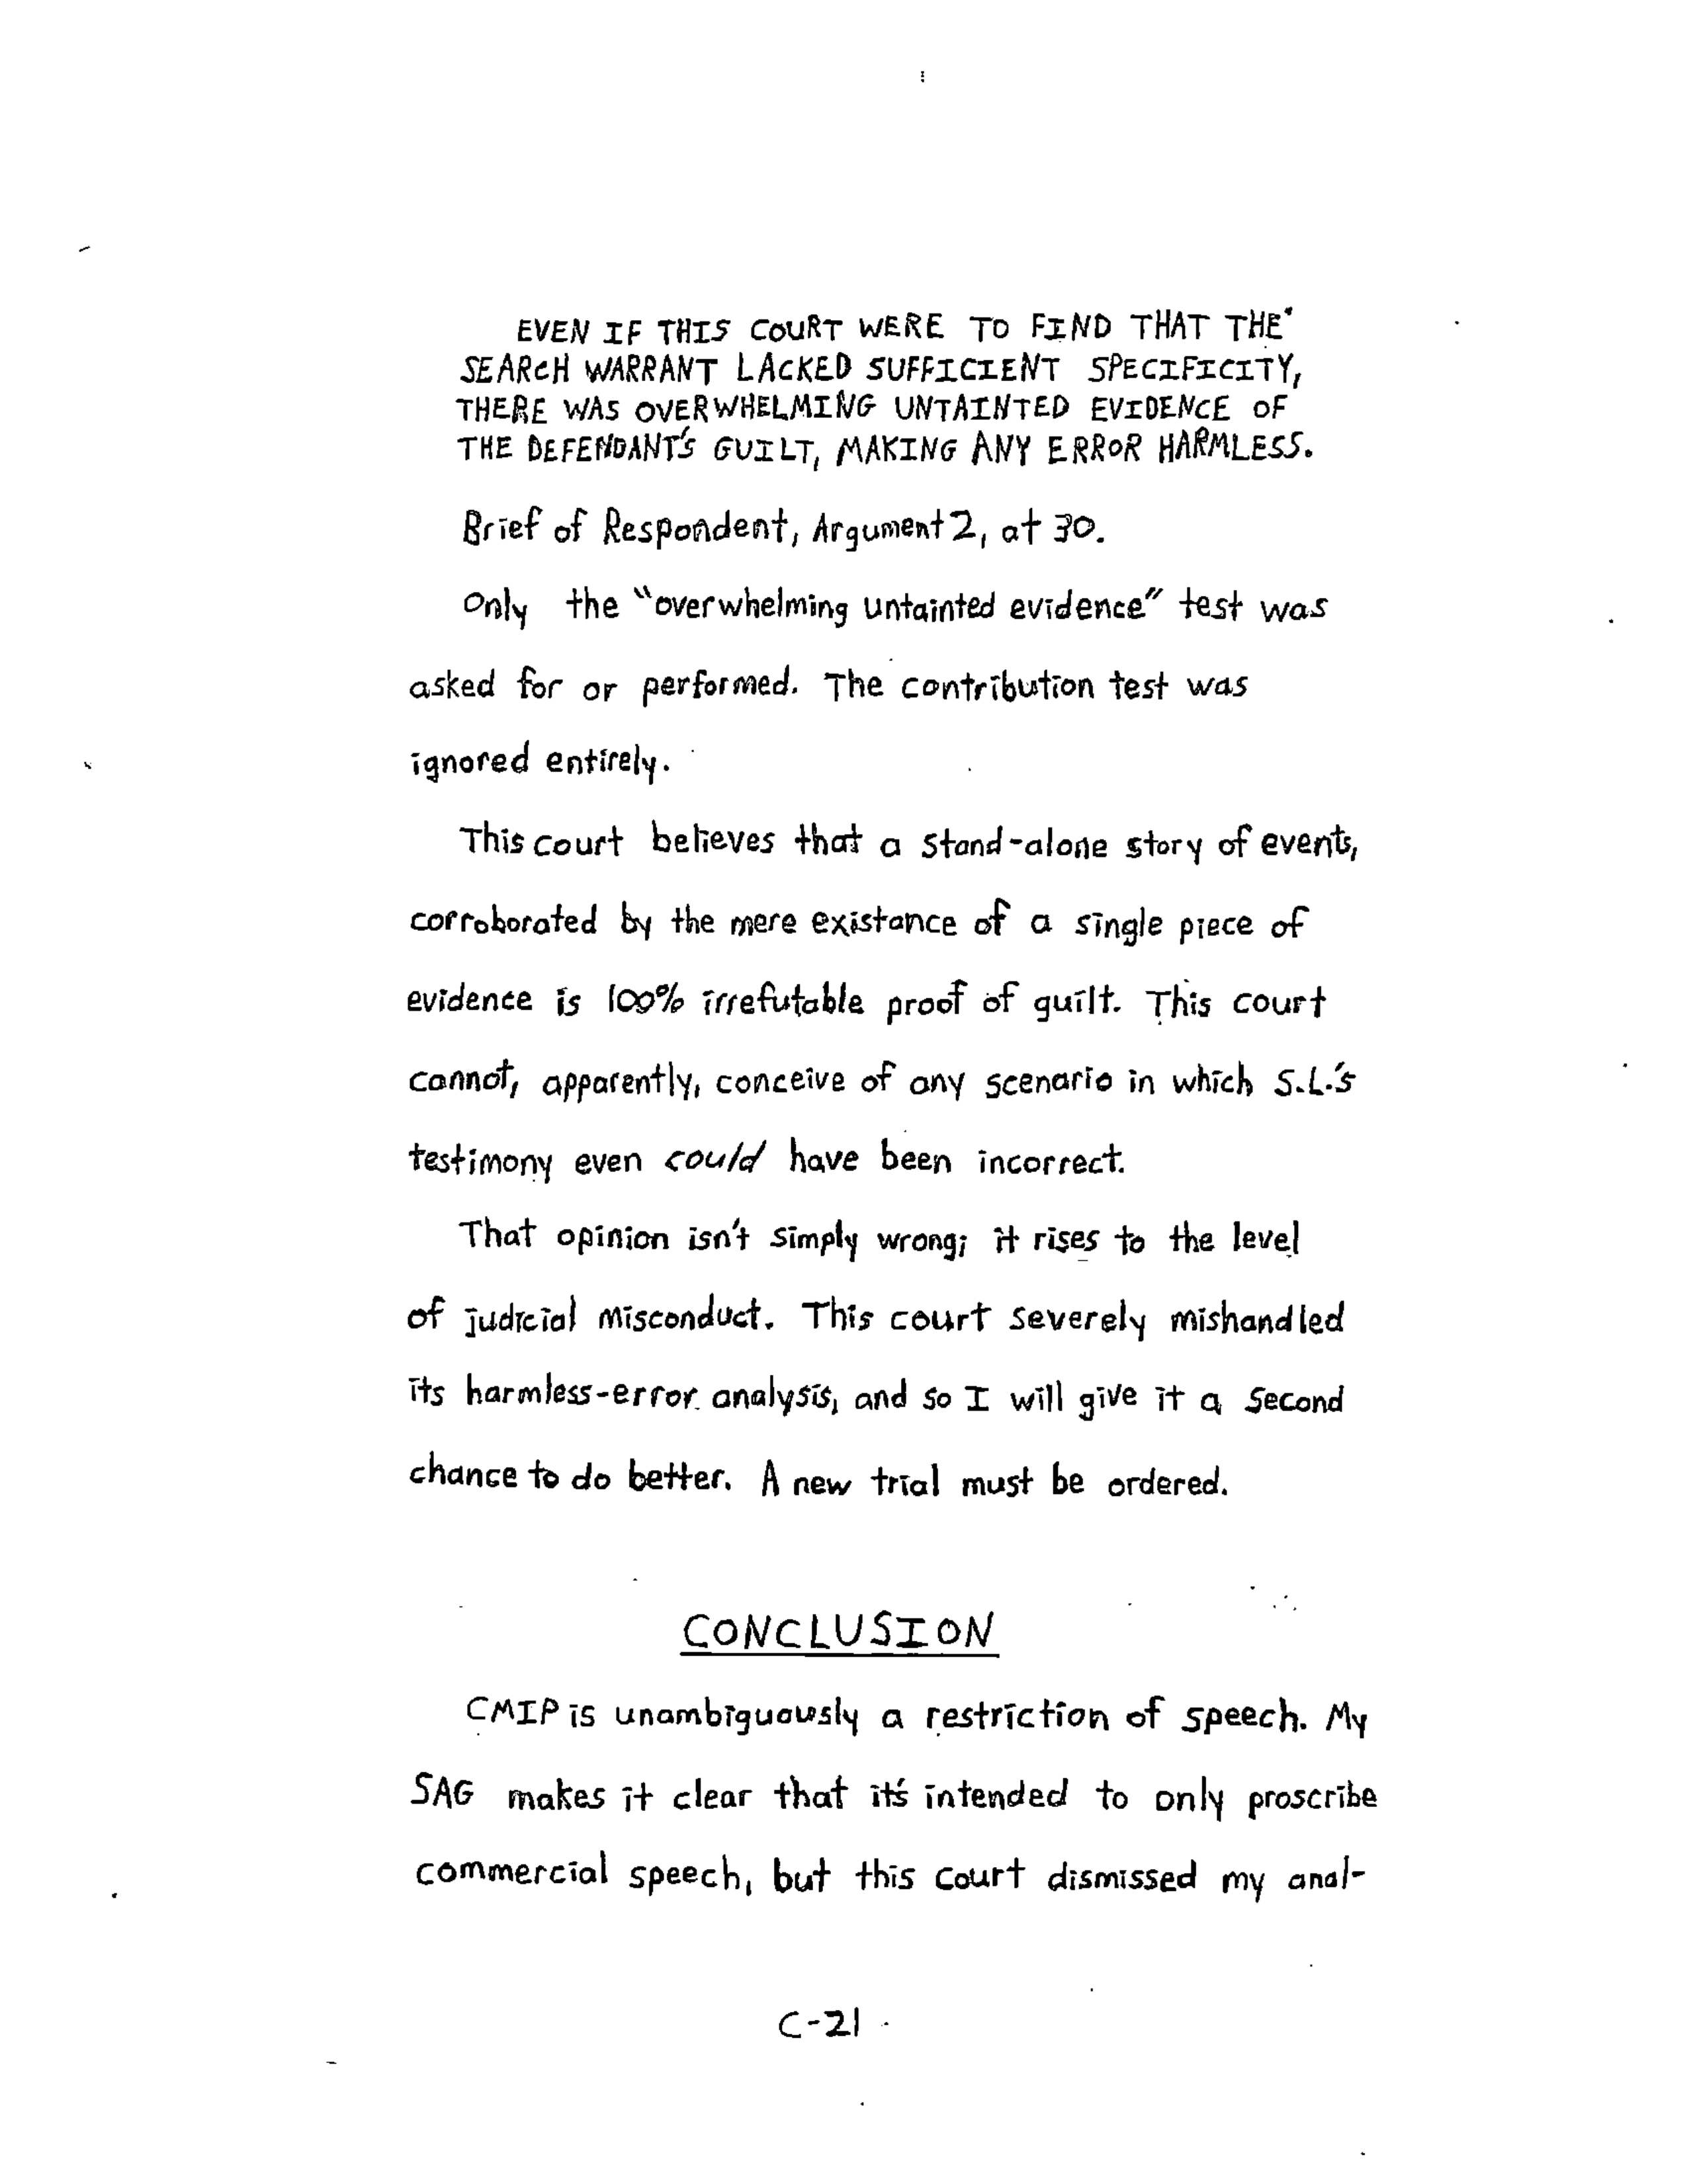 EVEN IF THIS COURT WERE TO FIND THAT THE
SEARCH WARRANT LACKED SUFFICIENT SPECIFICITY,
THERE WAS OVERWHELMING UNTAINTED EVIDENCE OF
THE DEFENDANT'S GUILT, MAKING ANY ERROR HARMLESS.
Brief of Respondent, Argument 2, at 30.
Only the "overwhelming untainted evidence" test was
asked for or performed. The contribution test was
ignored entirely.
This court believes that a stand-alone story of events,
corroborated by the mere existance of a single piece of
evidence is 100% irrefutable proof of guilt. This court
cannot, apparently, conceive of any scenario in which S.L.'s
testimony even could have been incorrect.
That opinion isn't simply wrong; it rises to the level
of judicial misconduct. This court severely mishandled
its harmless-error analysis, and so I will give it a second
chance to do better. A new trial must be ordered.
CONCLUSION
CMIP is unambiguously a restriction of speech. My
SAG makes it clear that it's intended to only proscribe
commercial speech, but this court dismissed my anal-
C-21